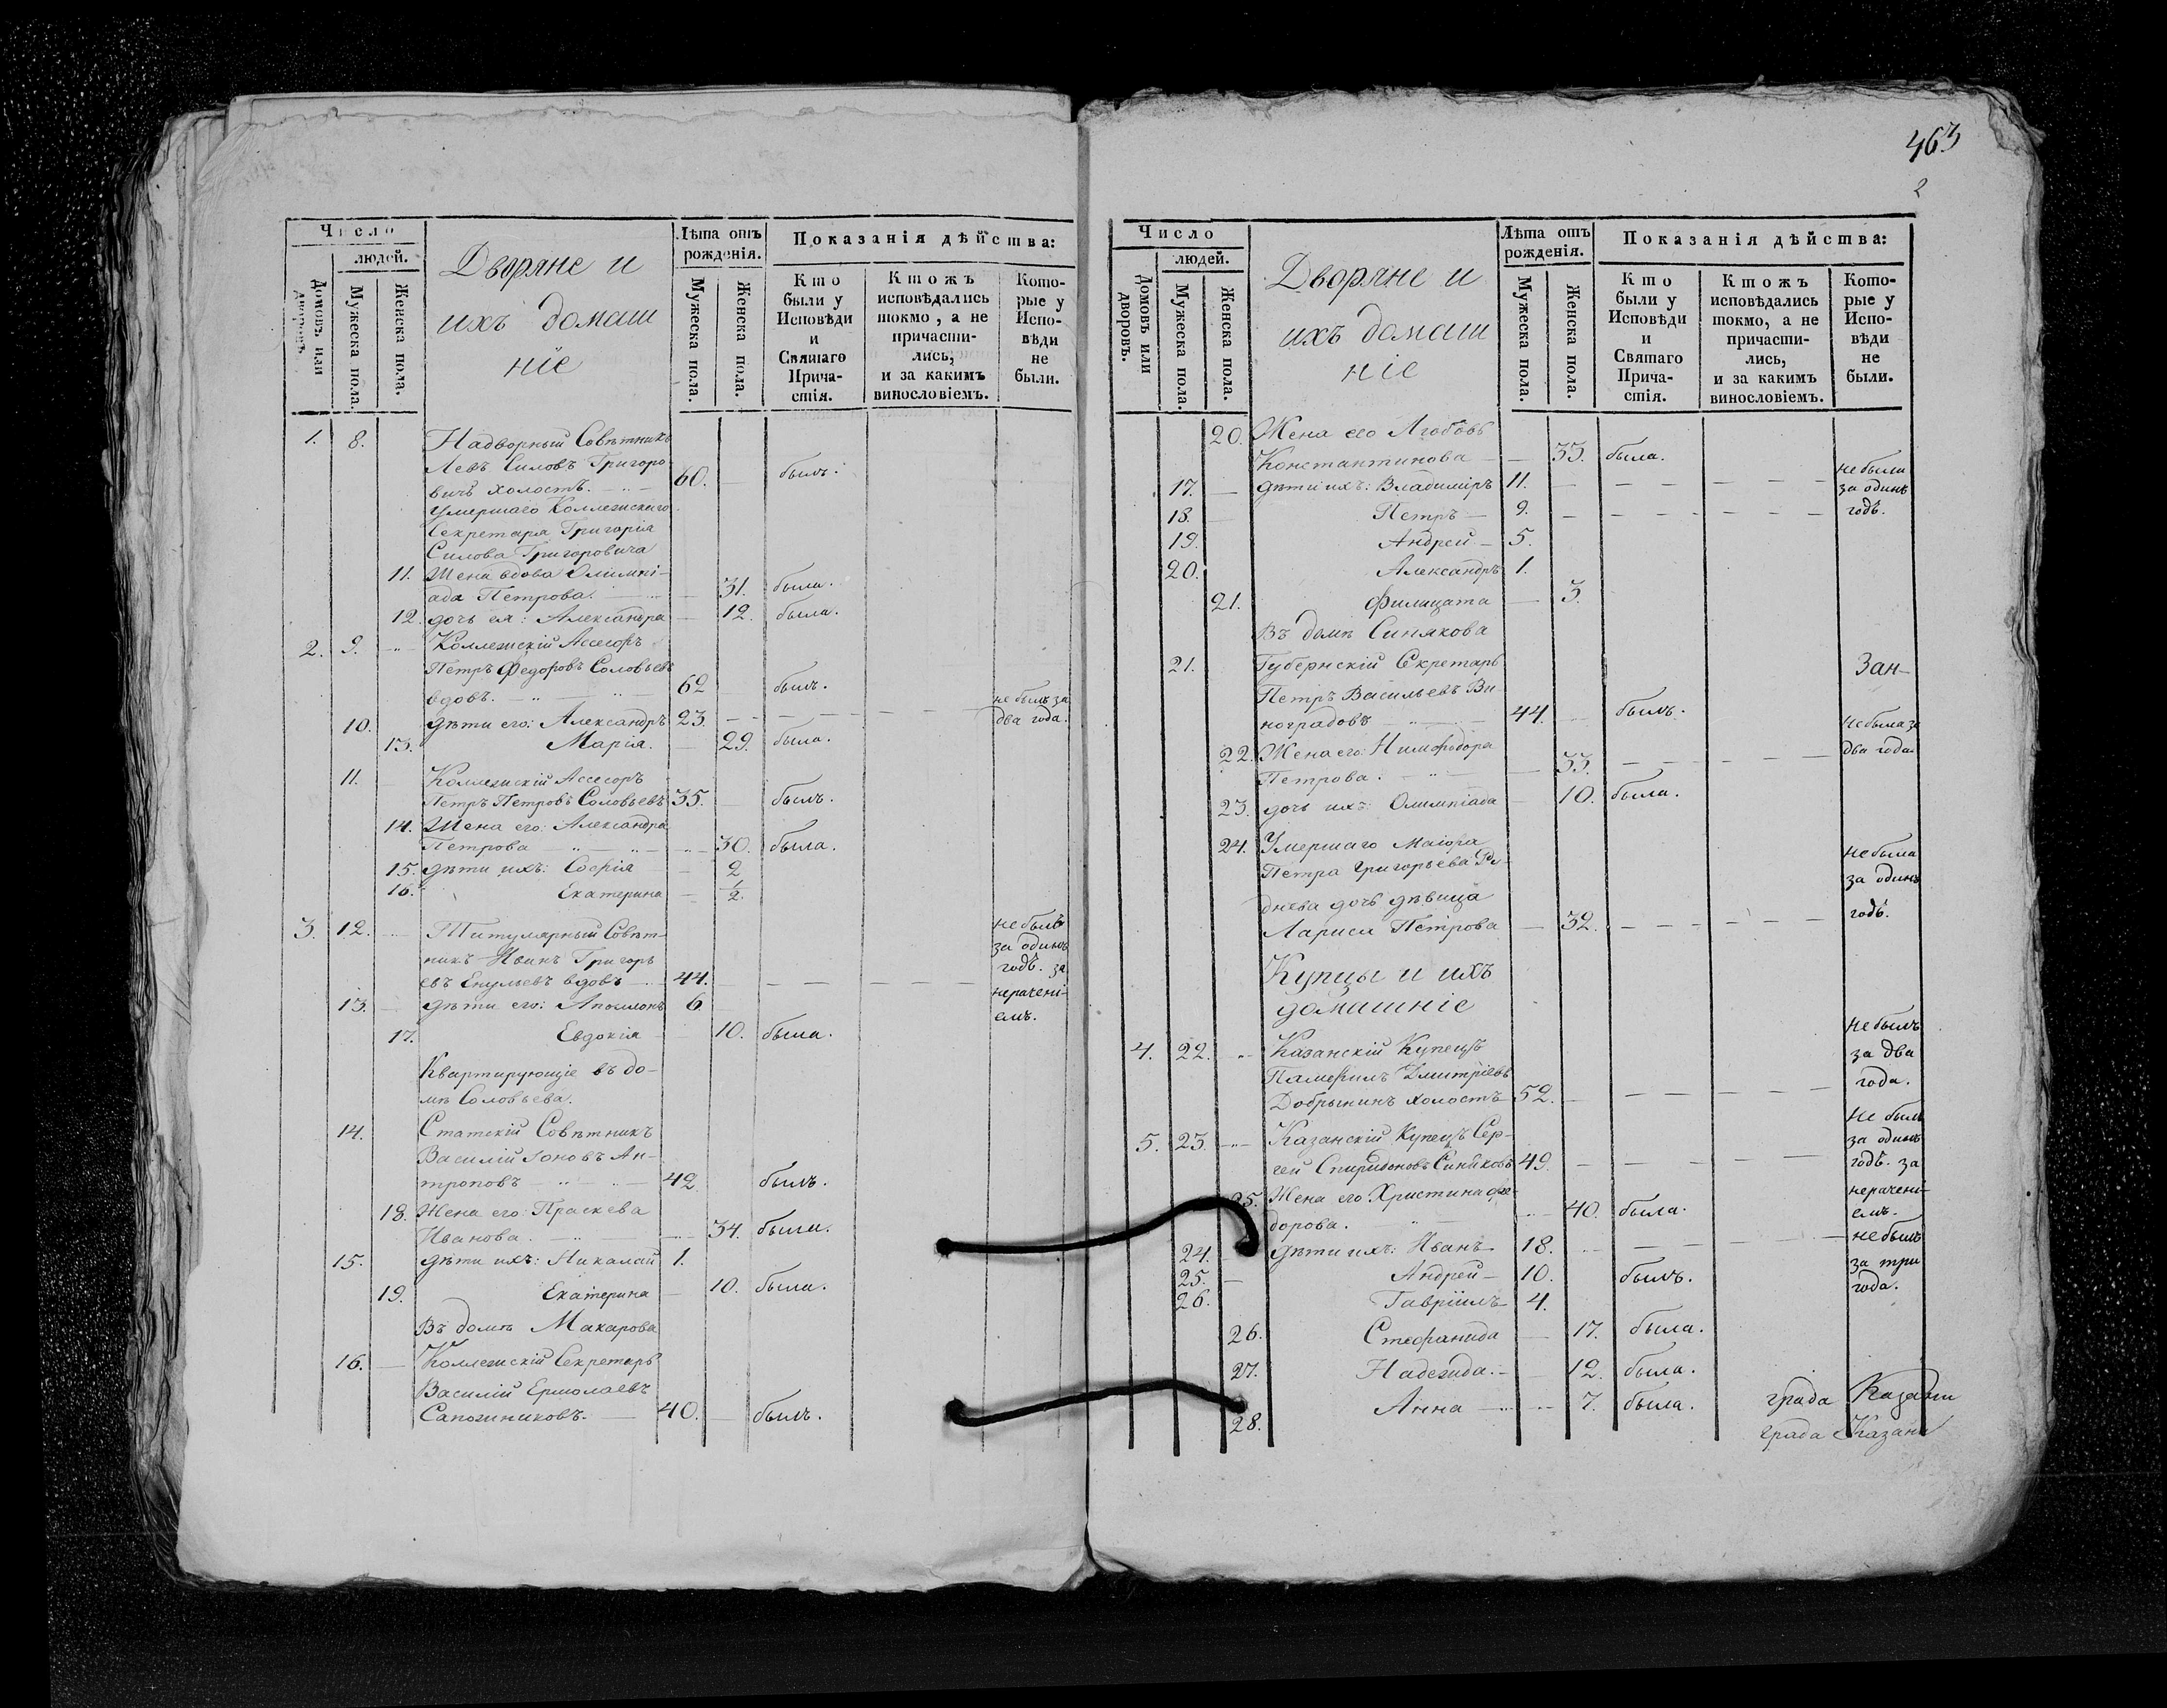 463
2
Число
людей.
Домовъ или дворовъ.
Мужеска пола.
Женска пола.
Дворяне и
ихъ домаш
ніе
Лѣта отъ
рожденія.
Мужеска пола.
Женска пола.
Показанія дѣйства:
Кто
были у
Исповѣди
и
Святаго
Прича-
стія.
Ктожъ
исповѣдались
токмо, а не
причасти-
лись,
и за какимъ
винословіемъ.
Кото-
рые у
Испо-
вѣди
не
были.
1. 8. Надворный Совѣтникъ
Левъ Силовъ Григоро
вичь холостъ. 60. былъ.
Умершаго Коллежскаго
Секретаря Григорія
Силова Григоровича
11. Жена вдова Олимпі-
ада Петрова. 31. была.
12. дочь ея: Александра 12. была.
2. 9. Коллежскій Ассесоръ
Петръ Федоровъ Соловьевъ
вдовъ. 62 былъ.
не былъ за
10. дѣти его: Александръ 23. два года.
13. Марія. 29. была.
11. Коллежскій Ассесоръ
Петръ Петровъ Соловьевъ 35. былъ.
14. Жена его: Александра
Петрова 30. была.
15. дѣти ихъ: Софія 2
16. Екатерина 1/2.
3. 12. Титулярный Совѣт- не былъ
никъ Иванъ Григорь за одинъ
евъ Енульевъ вдовъ 44. годъ. за
13. дѣти его: Аполлонъ 6 нерачені-
емъ.
17. Евдокія 10. была.
Квартирующіе въ до-
мѣ Соловьева.
14. Статскій Совѣтникъ
Василій Іоновъ Ан-
троповъ 42 былъ.
18. Жена его: Праскева
Иванова. 34. была.
15. дѣти ихъ: Николай 1.
19. Екатерина 10. была.
Въ домѣ Макарова
16. Коллежскій Секретарь
Василій Ермолаевъ
Сапожниковъ. 40. былъ.
Число
людей.
Домовъ или дворовъ.
Мужеска пола.
Женска пола.
Дворяне и
ихъ домаш
ніе
Лѣта отъ
рожденія.
Мужеска пола.
Женска пола.
Показанія дѣйства:
Кто
были у
Исповѣди
и
Святаго
Прича-
стія.
Ктожъ
исповѣдались
токмо, а не
причасти-
лись,
и за какимъ
винословіемъ.
Кото-
рые у
Испо-
вѣди
не
были.
20. Жена его Любовь
Константинова 33. была.
не были
17. дѣти ихъ: Владиміръ 11. за одинъ
18. Петръ 9. годъ.
19. Андрей 5.
20. Александръ 1.
21. Филицата 3.
Въ домѣ Синякова
21. Губернскій Секретарь Зан-
Петръ Васильевъ Ви-
ноградовъ 44. былъ.
не была за
22. Жена его: Нимфодора два года.
Петрова. 33.
23. дочь ихъ: Олимпіада 10. была.
24. Умершаго Маіора не была
Петра Григорьева за одинъ
днева дочь дѣвица годъ.
Лариса Петрова 32.
Купцы и ихъ
домашніе
4. 22. Казанскій Купецъ не былъ
Памфилъ Дмитріевъ за два
Добрынинъ холостъ 52. года.
5. 23. Казанскій Купецъ Сер- не былъ
гей Спиридоновъ Синяковъ 49. за одинъ
годъ. за
25. Жена его Христина Фе- нерачені-
дорова. 40. была. емъ.
24. дѣти ихъ: Иванъ 18. не былъ
25. Андрей 10. былъ. за три
26. Гавріилъ 4. года.
26. Стефанида 17. была.
27. Надежда. 12. была.
28. Анна 7. была.
града Казани
града Казани